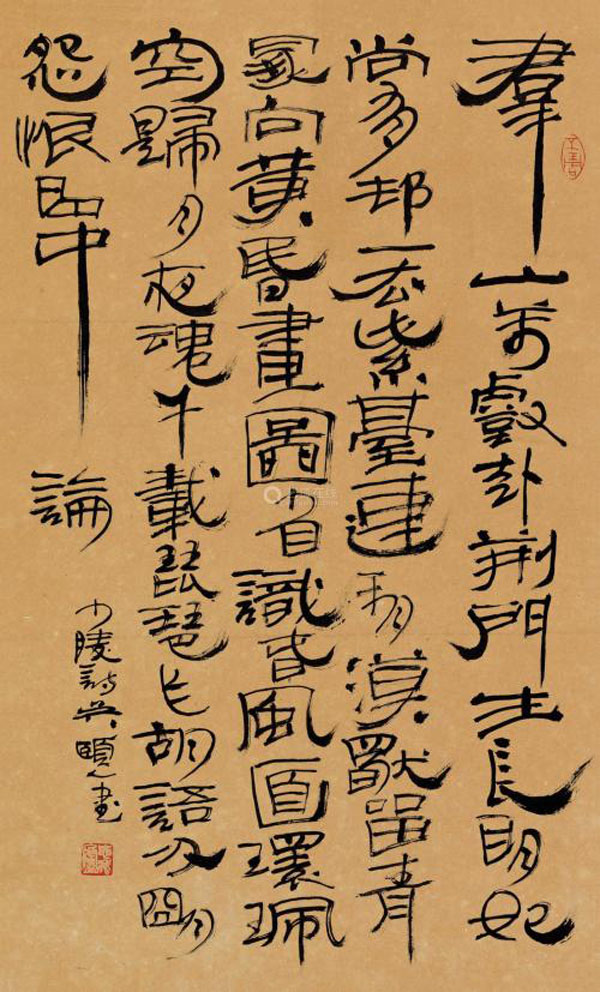 羣山萬壑赴荊門生長明妃
尚有邨一去紫臺連朔漠獨留青
冢向黃昏畫圖省識春風面環珮
空歸月夜魂千載琵琶作胡語分明
怨恨曲中論
少陵詩吳頤人書